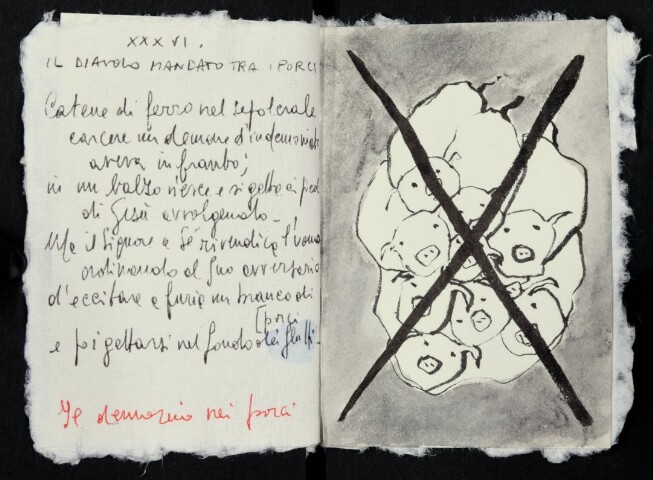 XXXVI.
IL DIAVOLO MANDATO TRA I PORCI
Catene di ferro nel sepolcrale
carcere un demone d'indemoniato
aveva infranto;
in un balzo riesce e si getta ai piedi
di Gesù avvolgendolo.
Ma il Signore a Sé rivendica l'uomo
ordinando al Suo avversario
d'eccitare a furia un branco di
[porci
e poi gettarsi nel fondo dei flutti.
Il demonio nei porci